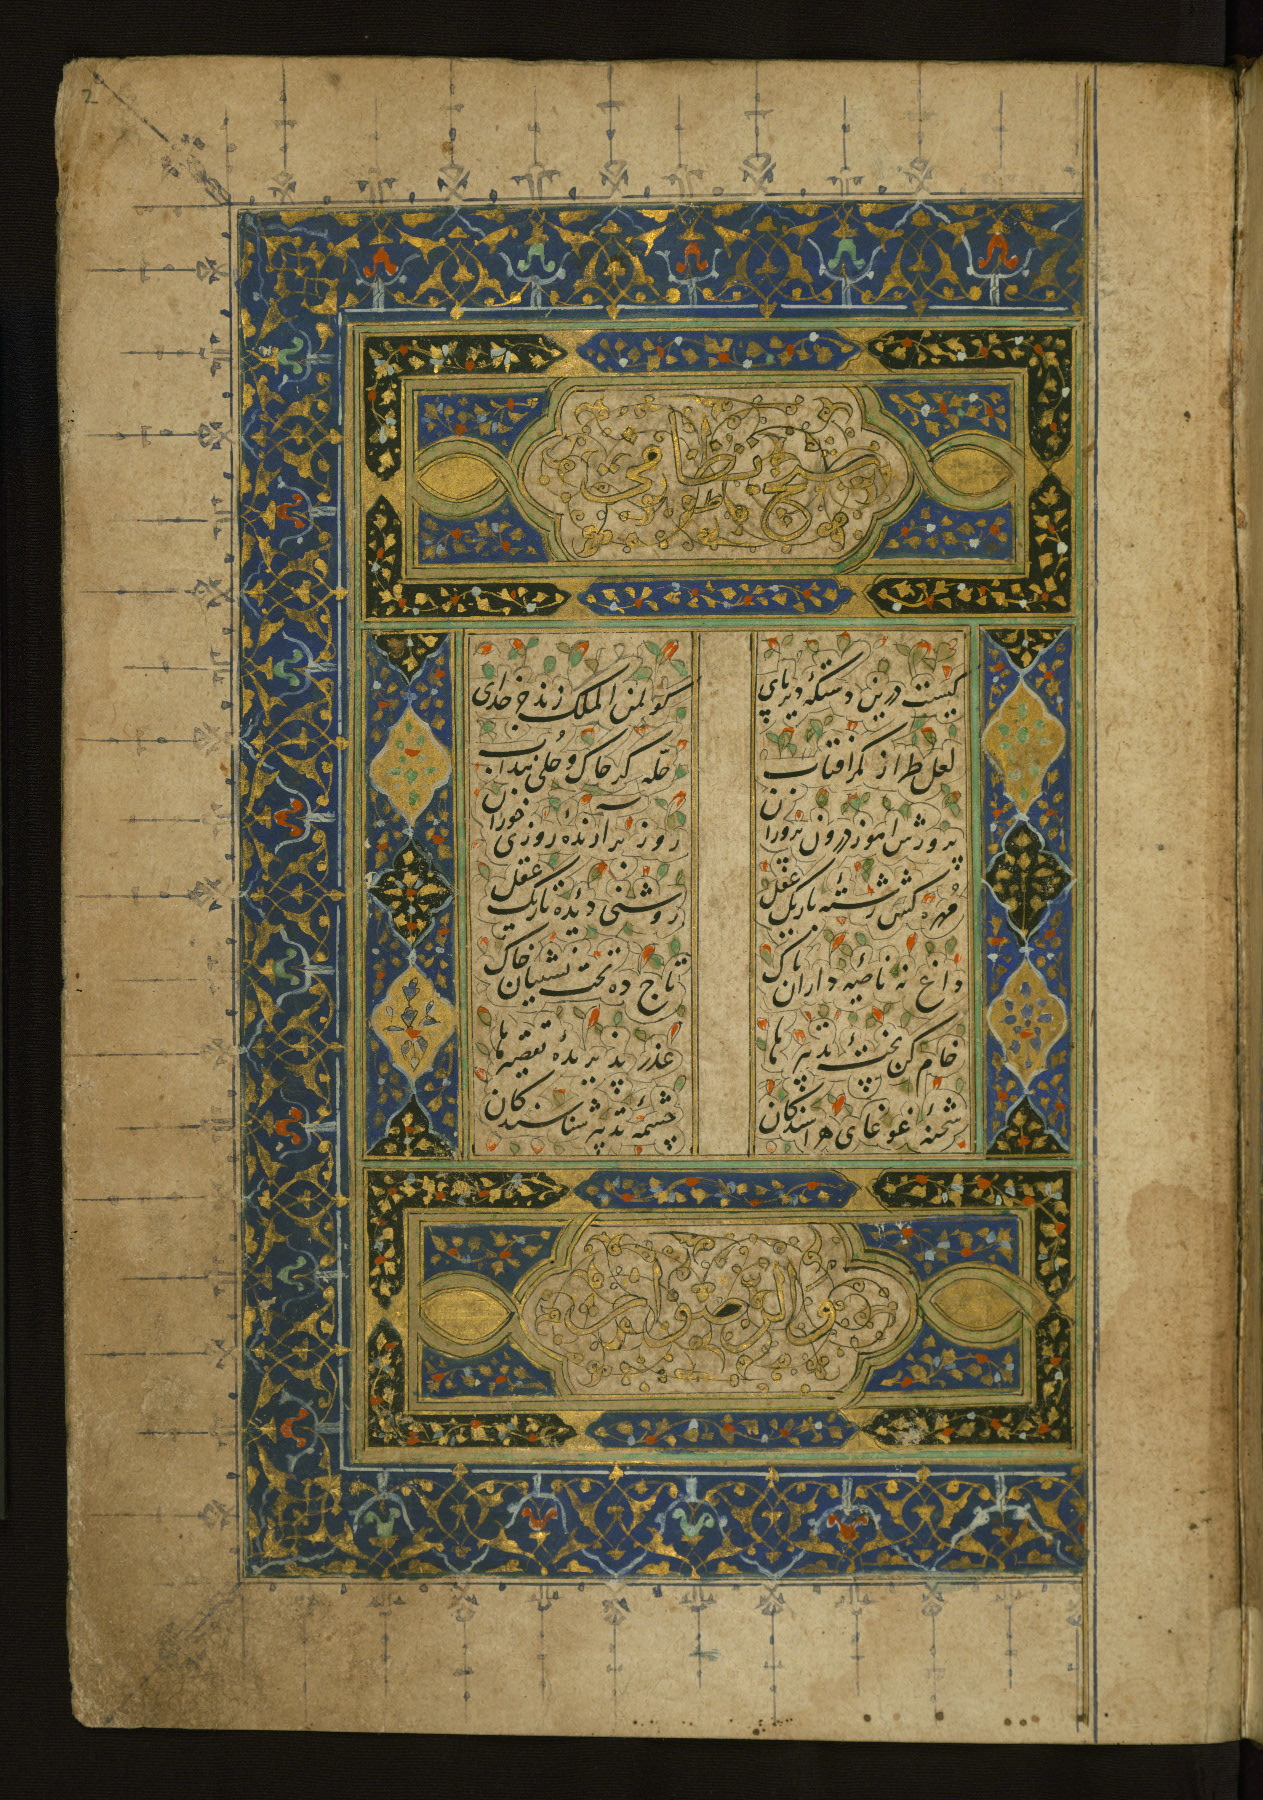 2
شیخ نظامی
کیست درین دستگه دیرپای کو لمن الملک زند جز خدای
لعل طراز کمر افتاب حلّه گر خاک و حُلی بند آب
پرورش اموز درون پروران روز برآرندهٔ روزی خوران
مهره کش رشتهٔ باریک عقل روشنی دیدهٔ تاریک عقل
داغ نه ناصیه داران پاک تاج ده تخت نشینان خاک
خام کن پختهٔ تدبیرها عذر پذیرندهٔ تقصیرها
شحنهٔ غوغای هراسندگان چشمهٔ تدبیر شناسندگان
والرضوان